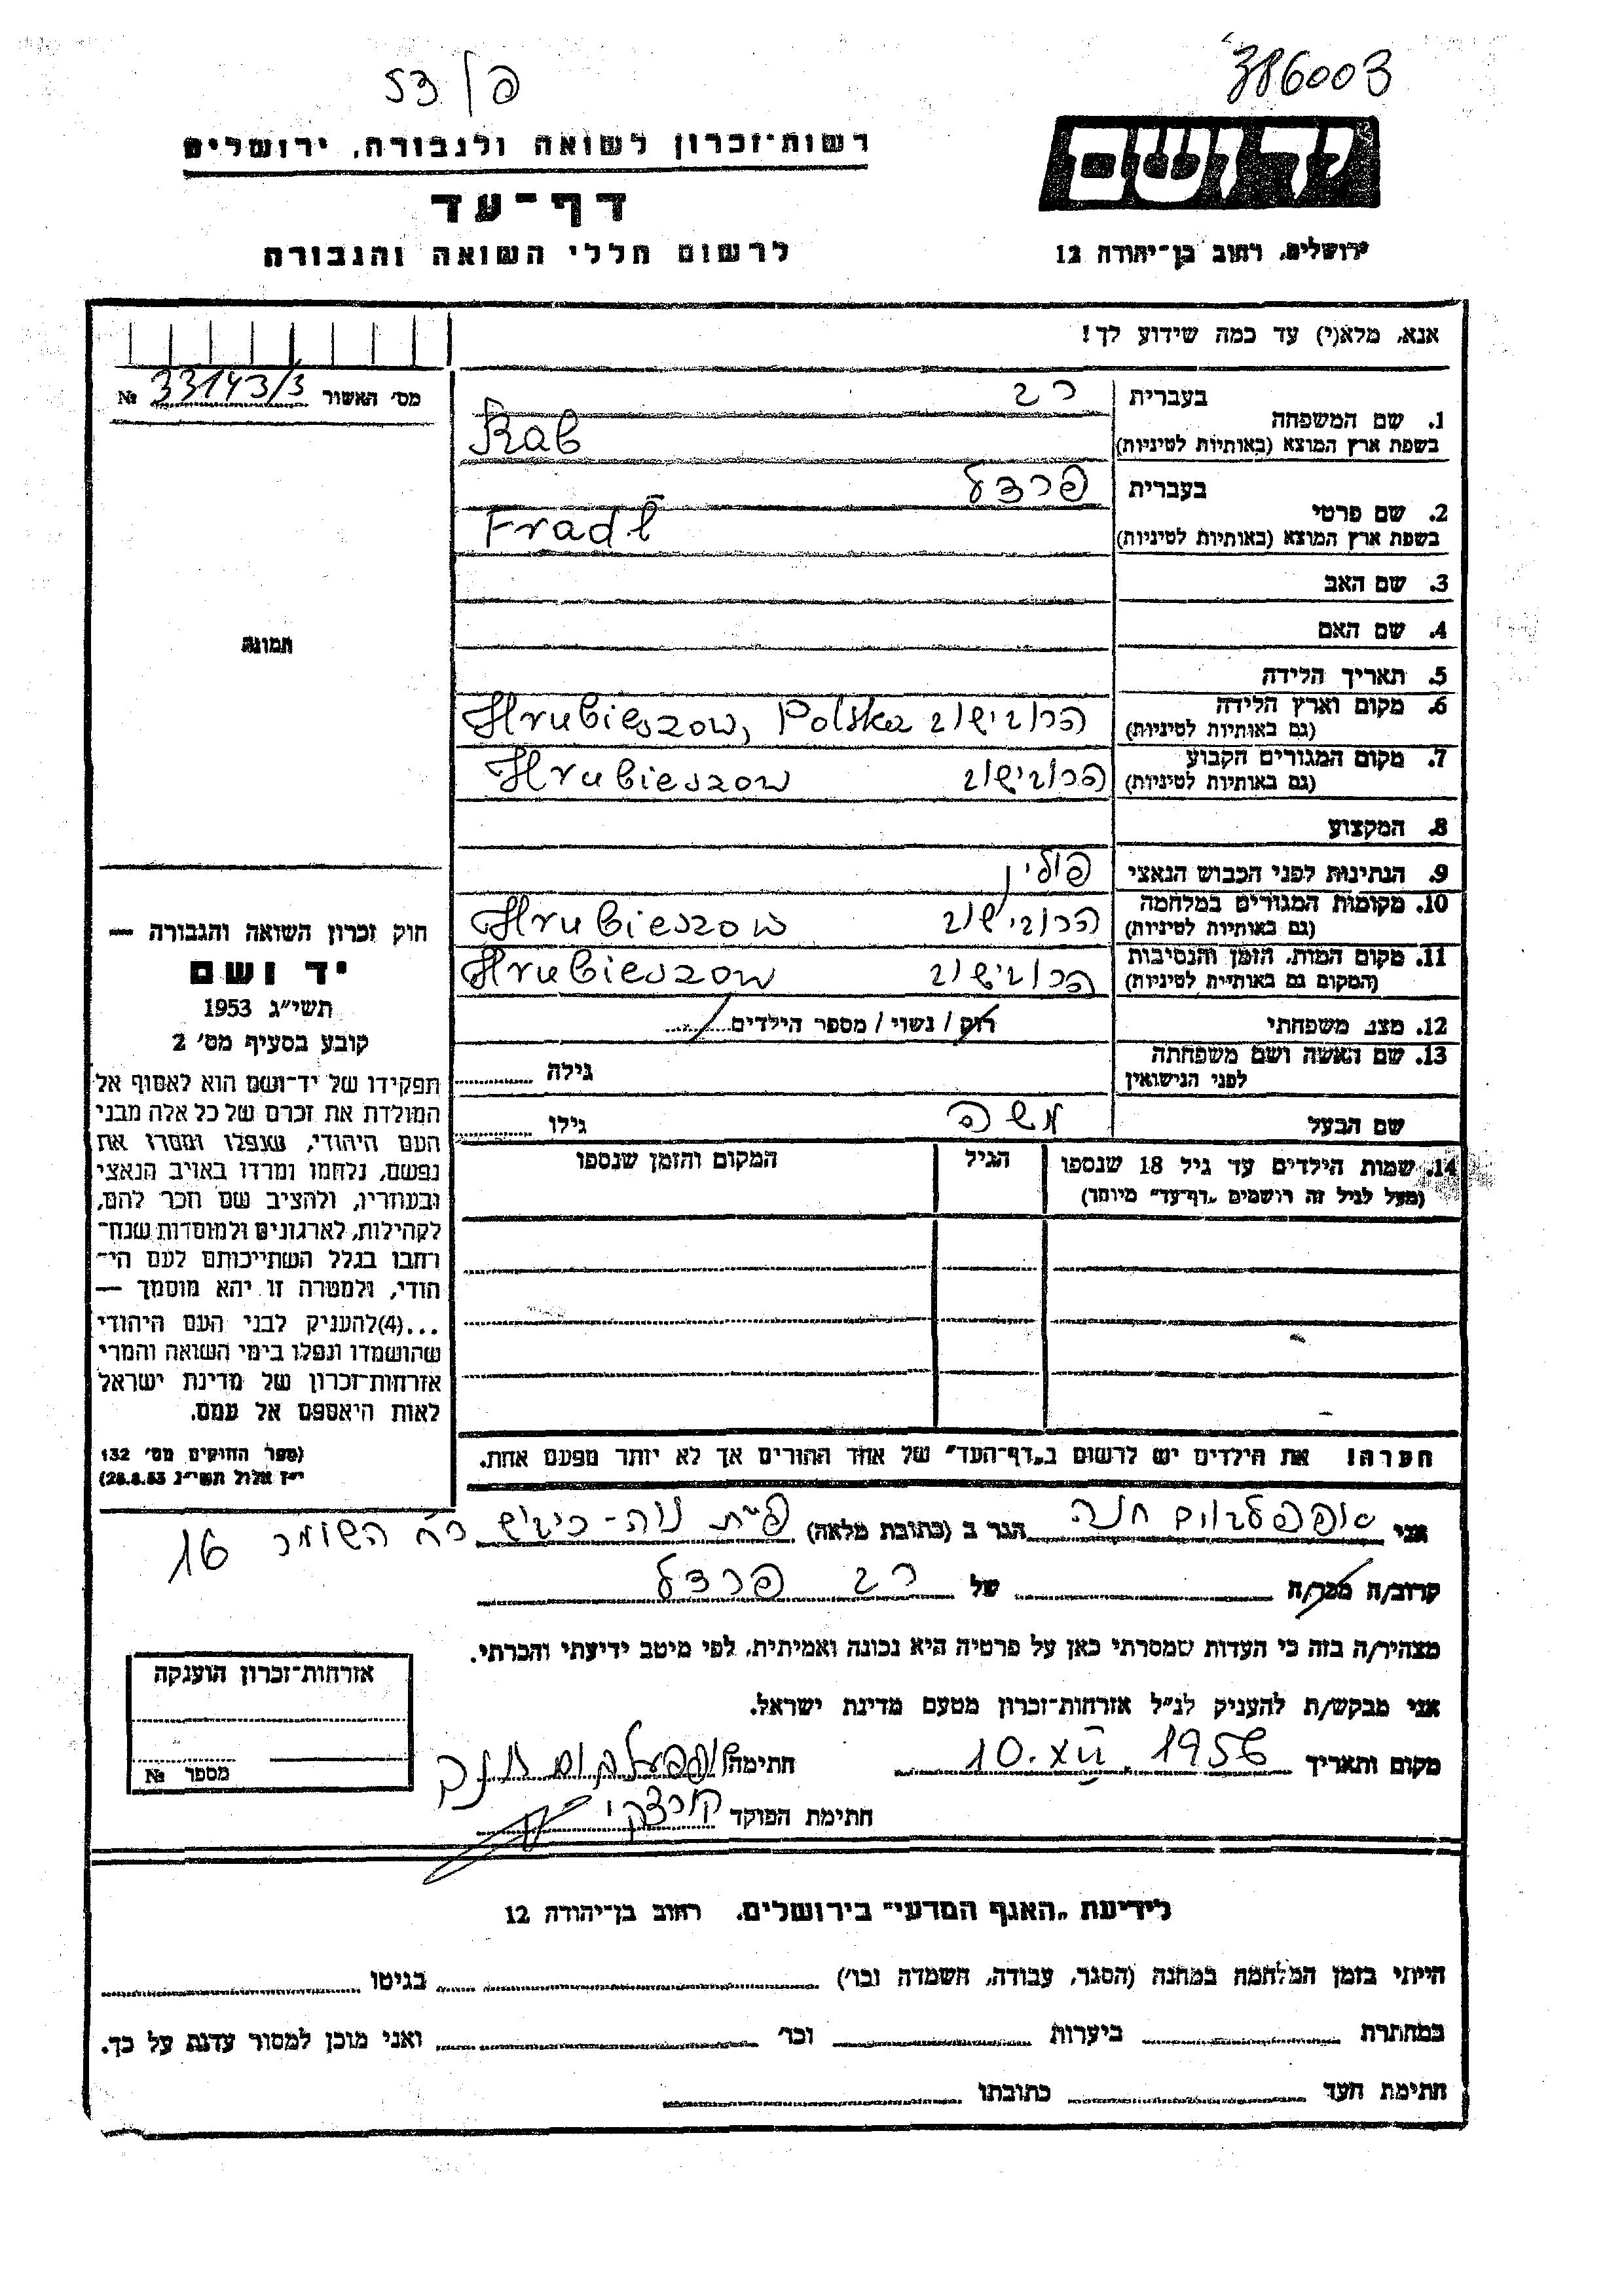 386003
53/פ
יד ושם
רשות־זכרון לשואה ולגבורה, ירושלים
דף־עד
לרשום חללי השואה והגבורה
ירושלים, רחוב בן־יהודה 12
אנא, מלא(י) עד כמה שידוע לך!
מס' האשור 33143/3 №
1. שם המשפחה
בעברית רב
בשפת ארץ המוצא (באותיות לטיניות) Rab
2. שם פרטי
בעברית פרדל
בשפת ארץ המוצא (באותיות לטיניות) Fradl
3. שם האב
4. שם האם
5. תאריך הלידה
6. מקום וארץ הלידה
(גם באותיות לטיניות) הרובישוב Hrubieszow, Polska
7. מקום המגורים הקבוע
(גם באותיות לטיניות) הרובישוב Hrubieszow
8. המקצוע
9. הנתינות לפני הכבוש הנאצי פולין
10. מקומות המגורים במלחמה
(גם באותיות לטיניות) הרובישוב Hrubieszow
11. מקום המות, הזמן והנסיבות
(המקום גם באותיות לטיניות) הרובישוב Hrubieszow
12. מצב משפחתי רוק / נשוי / מספר הילדים
13. שם האשה ושם משפחתה
לפני הנישואין גילה
שם הבעל משה גילו
14. שמות הילדים עד גיל 18 שנספו הגיל המקום והזמן שנספו
(מעל לגיל זה רושמים „דף־עד" מיוחד)
הערה! את הילדים יש לרשום ב„דף־העד" של אחד ההורים אך לא יותר מפעם אחת.
תמונה
חוק זכרון השואה והגבורה —
יד ושם
תשי"ג 1953
קובע בסעיף מס' 2
תפקידו של יד־ושם הוא לאסוף אל
המולדת את זכרם של כל אלה מבני
העם היהודי, שנפלו ומסרו את
נפשם, נלחמו ומרדו באויב הנאצי
ובעוזריו, ולהציב שם וזכר להם,
לקהילות, לארגונים ולמוסדות שנח־
רחבו בגלל השתייכותם לעם הי־
הודי, ולמטרה זו יהא מוסמך —
...(4)להעניק לבני העם היהודי
שהושמדו ונפלו בימי השואה והמרי
אזרחות־זכרון של מדינת ישראל
לאות היאספם אל עמם.
(ספר החוקים מס' 132
י"ז אלול תשי"ג 28.8.53)
אני אפפלבוים חנה הגר ב (כתובת מלאה) פ"ת נוה-כיבוש רח השומר 16
קרוב/ה מכר/ה של רב פרדל
מצהיר/ה בזה כי העדות שמסרתי כאן על פרטיה היא נכונה ואמיתית, לפי מיטב ידיעתי והכרתי.
אני מבקש/ת להעניק לנ"ל אזרחות־זכרון מטעם מדינת ישראל.
מקום ותאריך 10.XII.1956 חתימה אפפעלבוים חנה
חתימת הפוקד
אזרחות־זכרון הוענקה
מספר №
לידיעת „האגף המדעי" בירושלים, רחוב בן־יהודה 12
הייתי בזמן המלחמה במחנה (הסגר, עבודה, השמדה וכו') בגיטו
במחתרת ביערות וכו' ואני מוכן למסור עדות על כך.
חתימת העד כתובתו